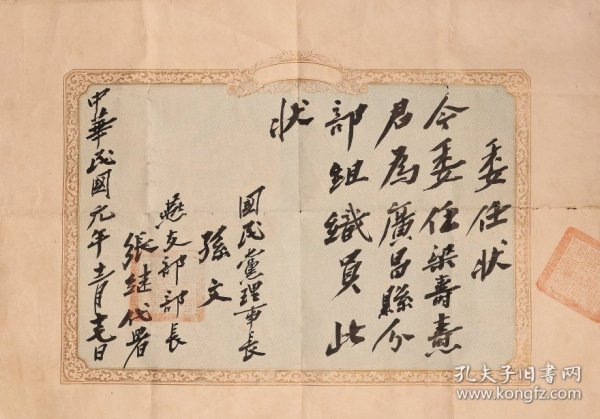 委任状
今委任梁壽熹
君為廣昌縣分
部組織員此
状
國民黨理事長
孫文
燕支部部長
張継代署
中華民國元年十二月十七日
孔夫子旧书网
kongfz.com